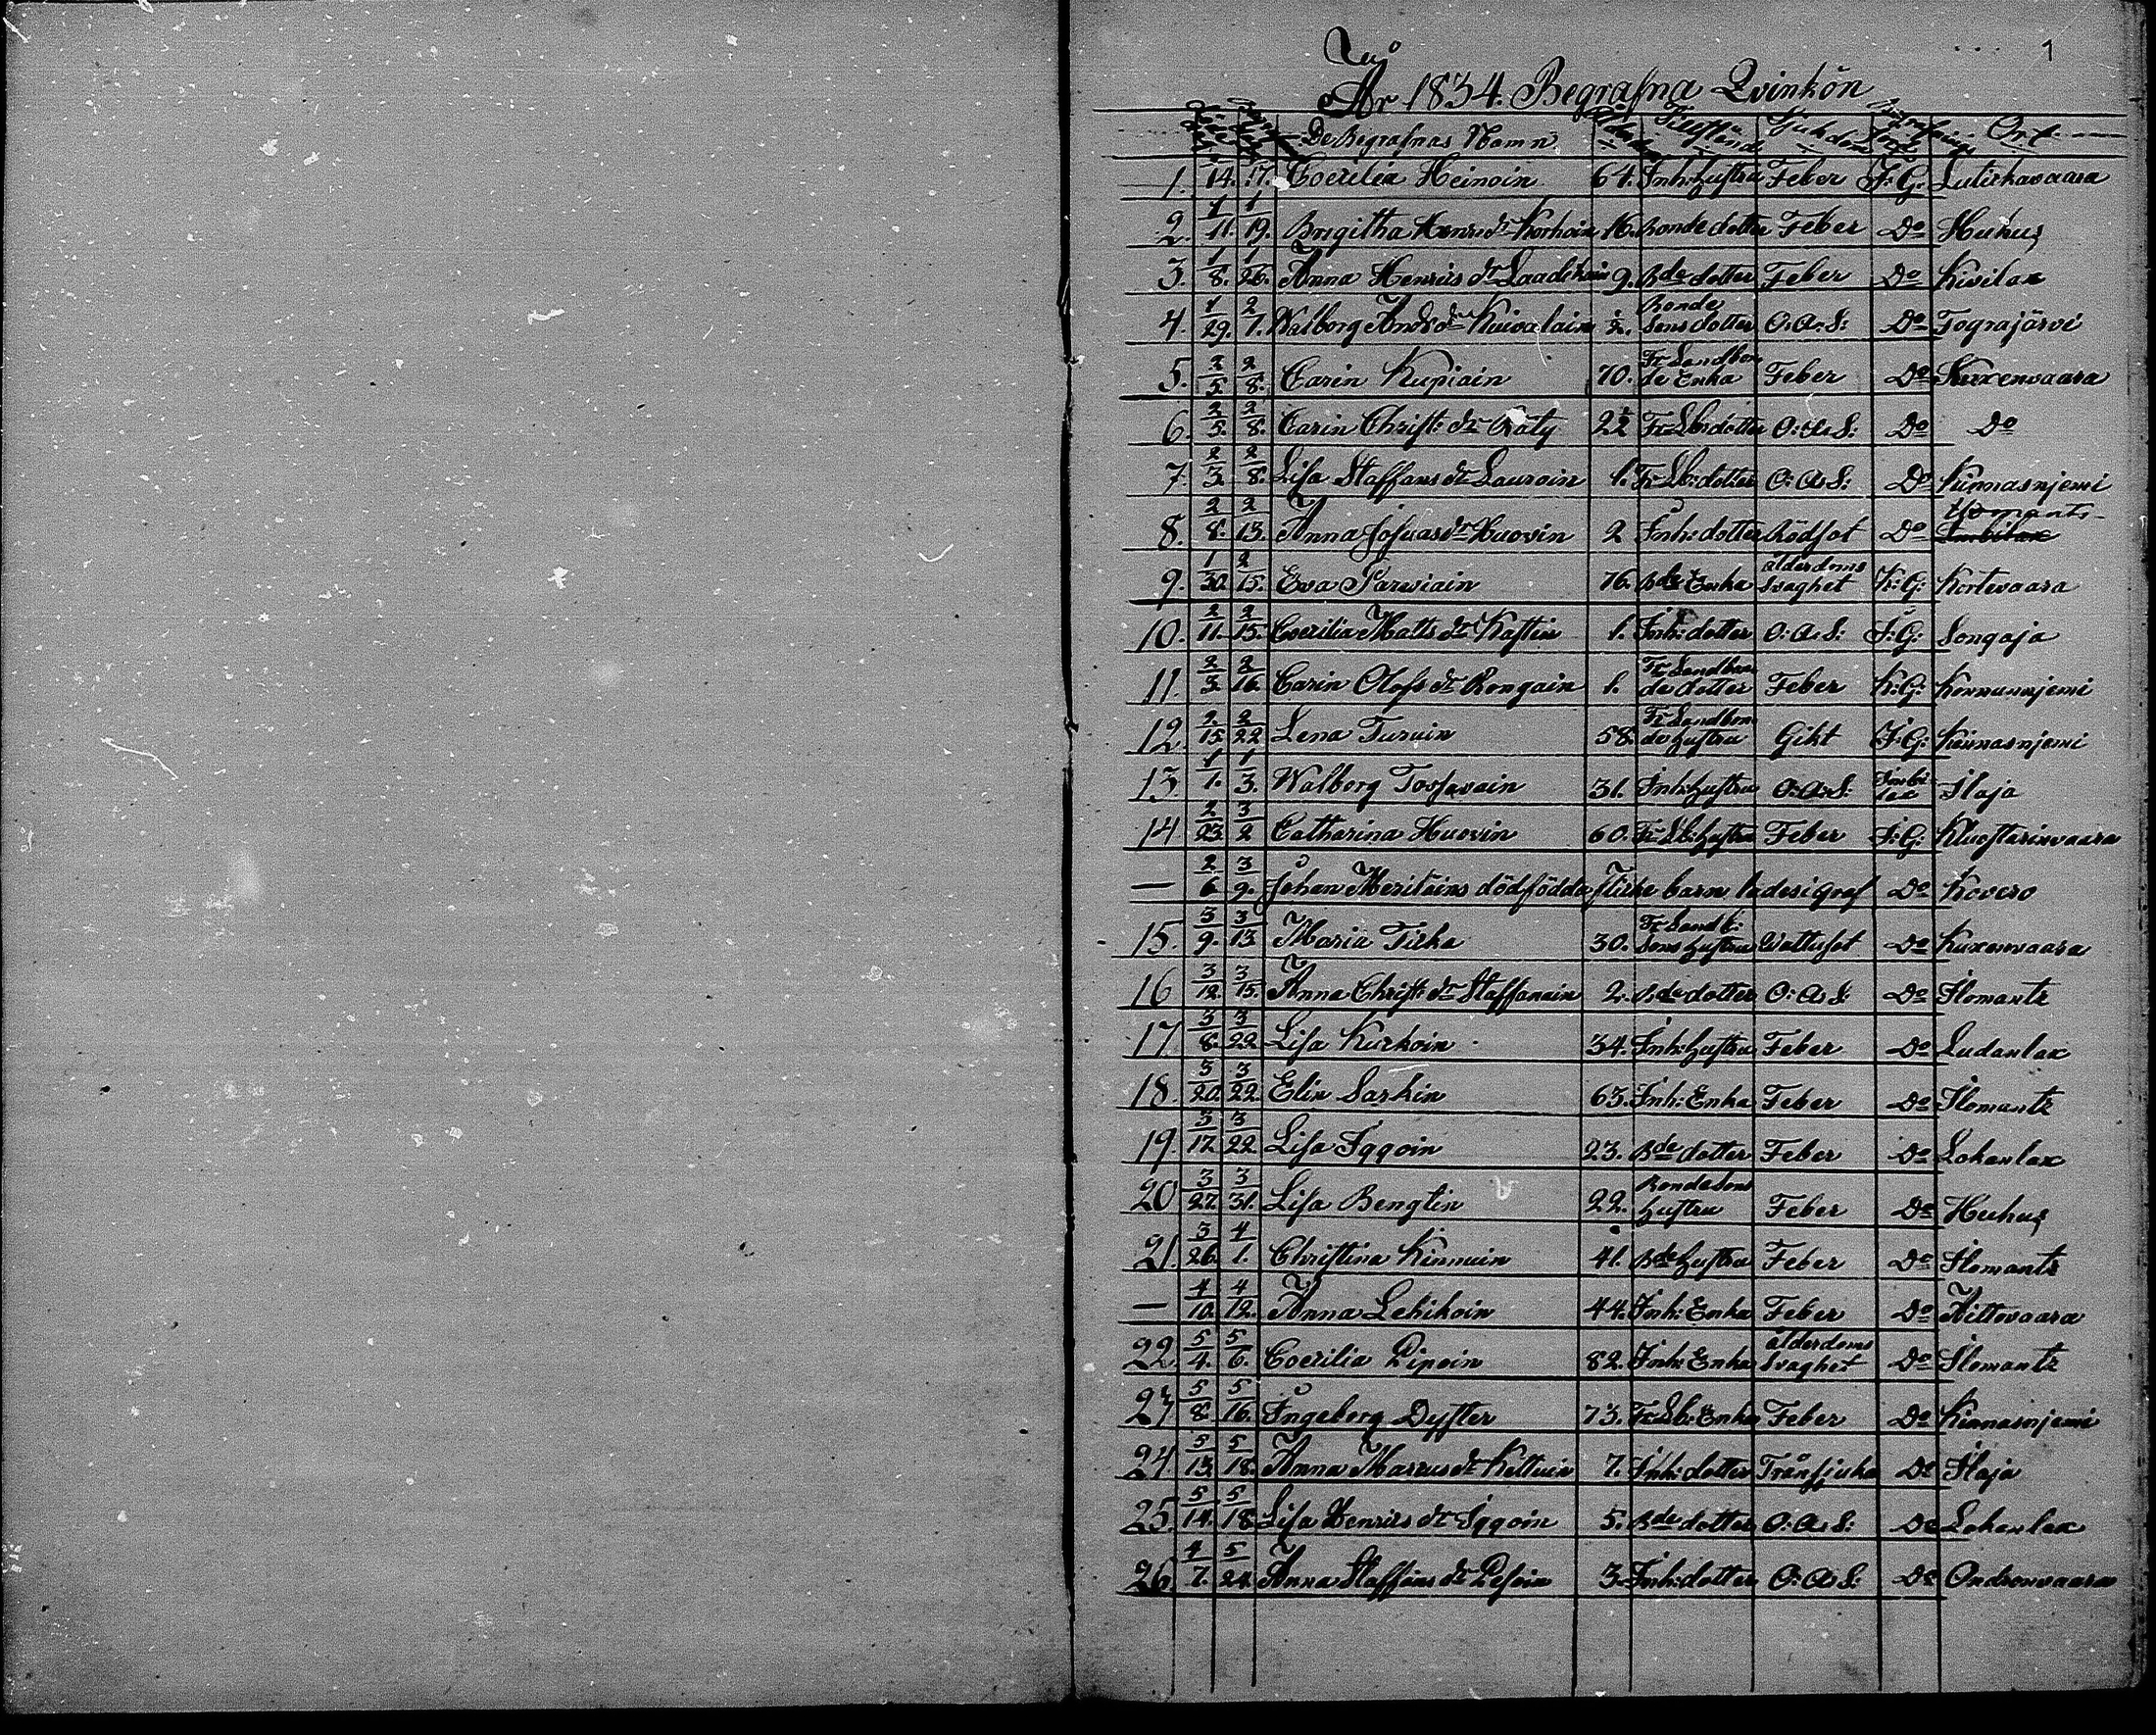 1
År 1834. Begrafna Qvinkön
De Begrafnas Namn Ort
1. 14. 17. Coecilia Heinoin 64. Inh: hustru Feber I. G.
2. 1/11. 1/19. Brigitha Henr: dr Korhoin 16. Bonde dotter Feber Do Huhus
3. 1/8. 1/26. Anna Henrics dr 9. Bde dotter Feber Do Kivilax
4. 1/29. 2/7. Walborg Andrs dr Kuivalain ½. Bonde Sons dotter O. A. S: Do Tograjärvi
5. 2/5. 2/8. Carin Kupiain 70. Fr Landbonde Enka Feber Do Kuxenvaara
6. 2/5. 2/8. Carin Christ: dr Räty Fr Lb: dotter O: A: S: Do Do
7. 2/3. 2/8. Lisa Staffans dr Lauroin 1. Fr Lb: dotter O: A: S: Do Kinnasnjemi
8. 2/8. 2/13. Anna Josuas dr Huovin 2 Inh: dotter Rödsot Do Ilomants
9. 1/30. 2/15. Eva Parviain 76. Bde Enka ålderdoms Svaghet K: G: Kortevaara
10. 2/11. 2/15. Coecilia Matts dr Kastin 1. Inh: dotter O: A: S: I: G: Songaja
11. 2/3. 2/16. Carin Olofs dr Rongain 1. Fr Landbonde dotter Feber K: G: Konnunnjemi
12. 2/15. 2/22. Lena Turuin 58. Fr Landbonde hustru Gikt I: G: Kinnasnjemi
13 1/1. 1/3. Walborg Tossavain 31. Inh: hustru O: A: S: Imbilax Ilaja
14 2/23. 3/2 Catharina Huovin 60. Fr Lb: hustru Feber I: G: Kluostarinvaara
— 2/6. 3/9. Johan Meriläins dödfödda flicke barn lades i graf Do Kovero
15. 3/9. 3/13 Maria Tirka 30. Fr Landb: Sons hustru Wattusot Do Kuxenvaara
16 3/12. 3/15. Anna Christ: dr Staffanain 2. Bde dotter O: A: S: Do Ilomants
17 3/8. 3/22. Lisa Kurkoin 34. Inh: hustru Feber Do Ludanlax
18. 3/20. 3/22. Elin Sarkin 63. Inh: Enka Feber Do Ilomants
19. 3/17. 3/22. Lisa Iggoin 23. Bde dotter Feber Do Lokanlax
20 3/27. 3/31. Lisa Bengtin 22. Bonde Sons hustru Feber Do Huhus
21. 3/26. 4/1. Christina Kinnuin 41. Bde hustru Feber Do Ilomants
— 4/10. 4/12. Anna Lehikoin 44. Inh: Enka Feber Do
22. 5/4. 5/6. Coecilia Piipoin 82. Inh: Enka ålderdoms Svaghet Do Ilomants
23 5/8. 5/16. Ingeborg Dyster 73. Fr Lb: Enka Feber Do Kinnasnjemi
24 5/13. 5/18. Anna Marcus dr Kettuin 7. Inh: dotter Tränsjuka Do Ilaja
25. 5/14. 5/18 Lisa Henrics dr Iggoin 5. Bde dotter O: A: S: Do Lokanlax
26 4/7. 5/24. Anna Staffans dr Pesoin 3. Inh: dotter O: A: S: Do Ondronvaara